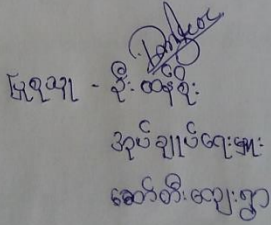 ပြုစုသူ - ဦးထန်စိုး
အုပ်ချုပ်ရေးမှူး
ဆော်တီးကျေးရွာ